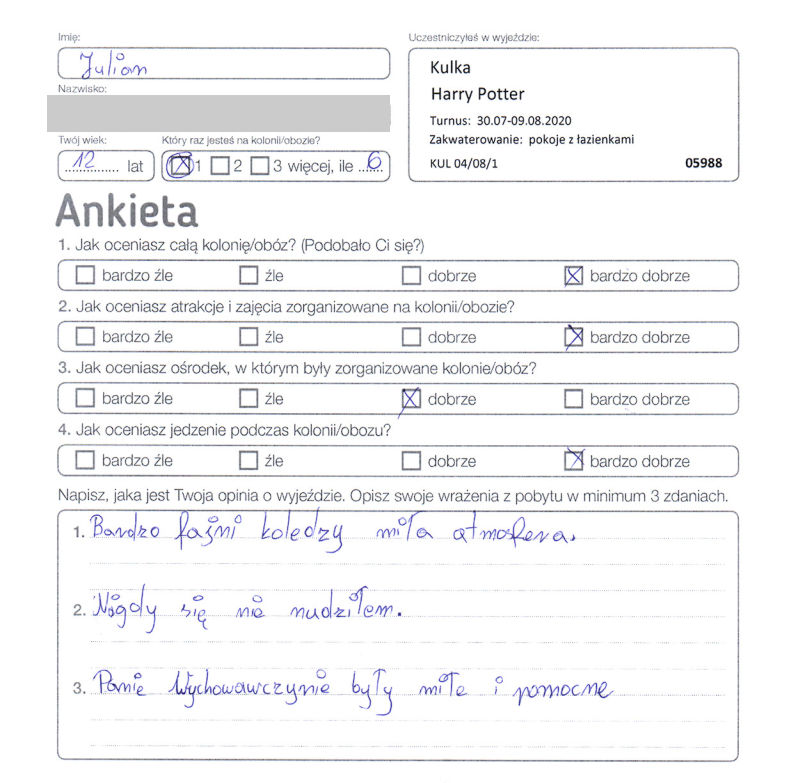 Imię:
Julian
Uczestniczyłeś w wyjeździe:
Kulka
Harry Potter
Turnus: 30.07-09.08.2020
Zakwaterowanie: pokoje z łazienkami
KUL 04/08/1 05988
Nazwisko:
Twój wiek:
12 lat
Który raz jesteś na kolonii/obozie?
1 2 3 więcej, ile 6
Ankieta
1. Jak oceniasz całą kolonię/obóz? (Podobało Ci się?)
bardzo źle źle dobrze bardzo dobrze
2. Jak oceniasz atrakcje i zajęcia zorganizowane na kolonii/obozie?
bardzo źle źle dobrze bardzo dobrze
3. Jak oceniasz ośrodek, w którym były zorganizowane kolonie/obóz?
bardzo źle źle dobrze bardzo dobrze
4. Jak oceniasz jedzenie podczas kolonii/obozu?
bardzo źle źle dobrze bardzo dobrze
Napisz, jaka jest Twoja opinia o wyjeździe. Opisz swoje wrażenia z pobytu w minimum 3 zdaniach.
1. Bardzo fajni koledzy miła atmosfera.
2. Nigdy się nie nudziłem.
3. Panie Wychowawczynie były miłe i pomocne